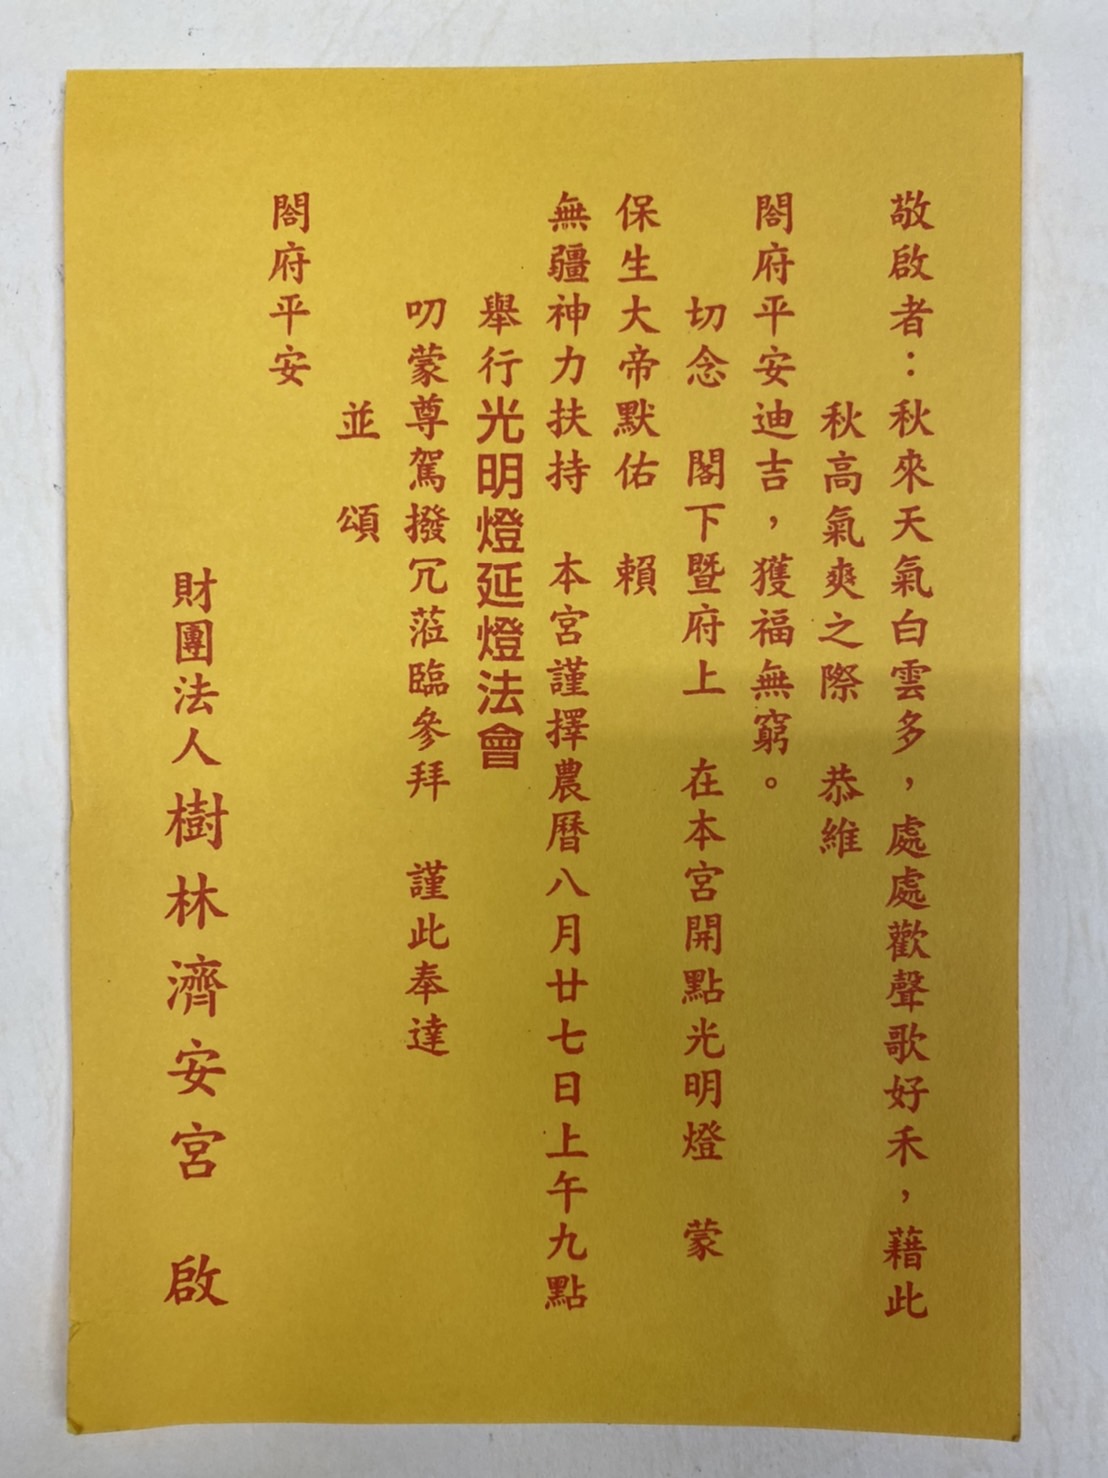 敬啟者：秋來天氣白雲多，處處歡聲歌好禾，藉此
秋高氣爽之際　恭維
閤府平安迪吉，獲福無窮。
切念　閣下暨府上　在本宮開點光明燈　蒙
保生大帝默佑　賴
無疆神力扶持　本宮謹擇農曆八月廿七日上午九點
舉行光明燈延燈法會
叨蒙尊駕撥冗蒞臨參拜　謹此奉達
並　頌
閤府平安
財團法人樹林濟安宮　啟